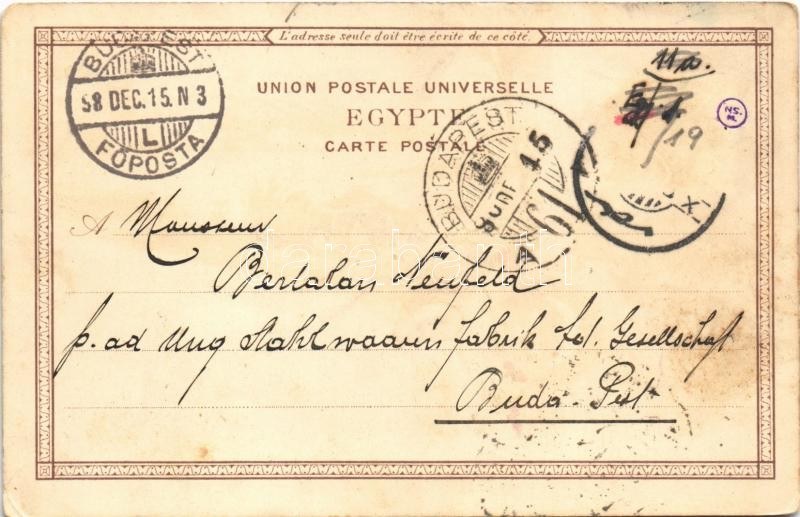 L'adresse seule doit être écrite de ce côté.
BUDAPEST
98 DEC. 15. N 3
L
FŐPOSTA
UNION POSTALE UNIVERSELLE
EGYPTE
CARTE POSTALE
BUDAPEST
15
11a.
19
NS.
A Monsieur
Bertalan Neufeld
p. ad Ung Stahlwaaren fabrik Act. Gesellschaft
Buda-Pest
darabanth